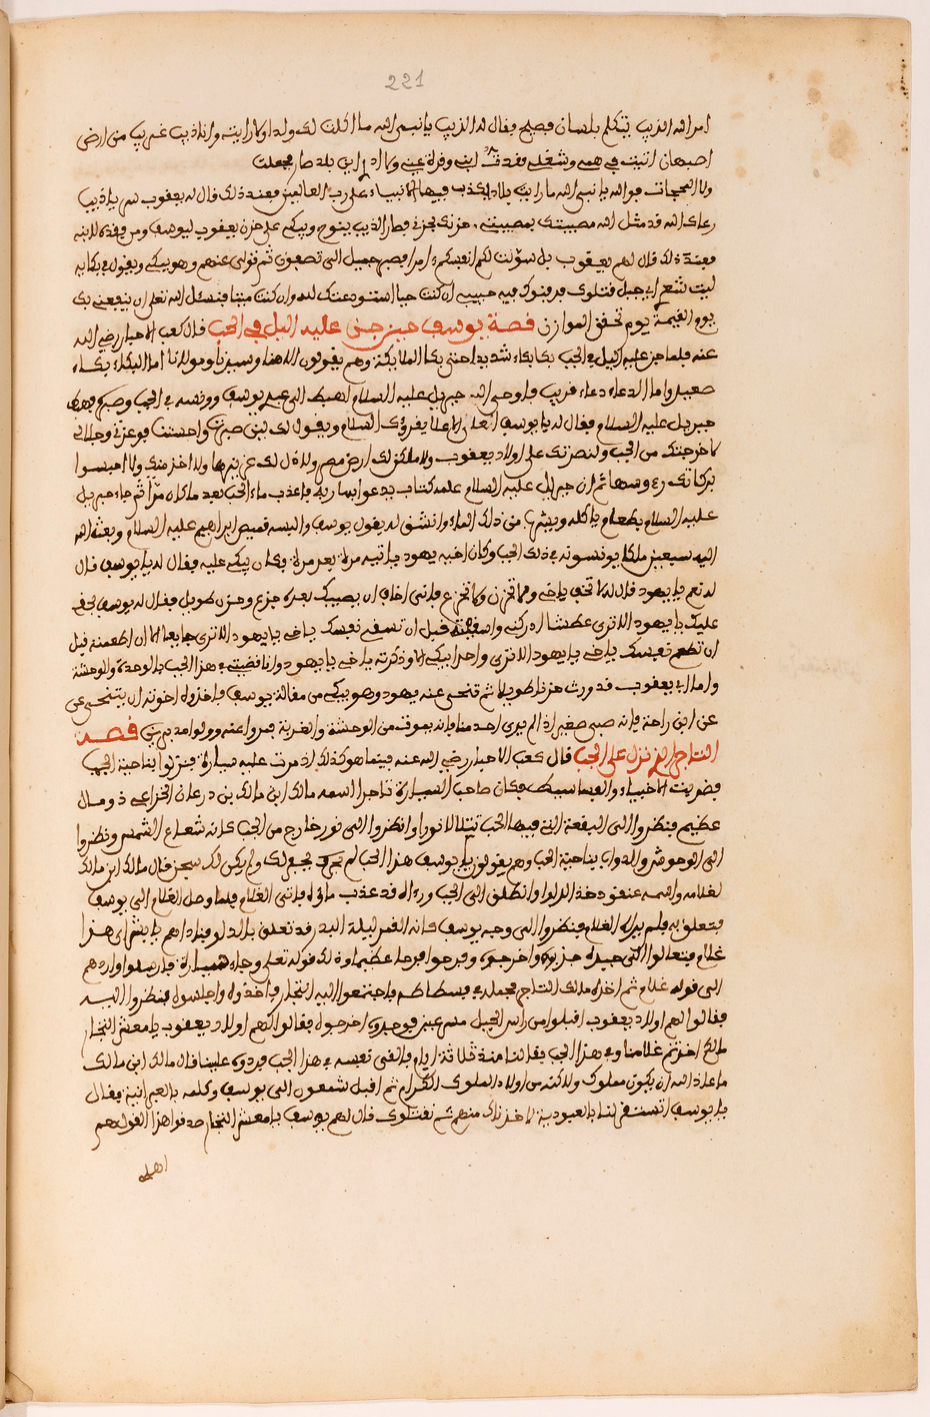 221
امر الله الذيب يتكلم بلسان فصيح فقال له الذيب يا نبي الله ما اكلت لك ولدا ولا رايته وانا ذيب غريب من ارض
اصبهان اتيت في همي وشغلي فقدت ابني وقرة عيني ولا ادري اين بلد صار فجعلت
فوالله يا نبي الله ما رايت بلاد يكذب فيها الانبياء على رب العالمين فعند ذلك قال له يعقوب سر يا ذيب
رعاك الله قد مثل الله مصيبتك بمصيبتي وحزنك بحزني فطار الذيب ينوح ويبكي على حزن يعقوب ليوسف ومن فقده لابنه
فعند ذلك قال لهم يعقوب بل سولت لكم انفسكم امرا فصبر جميل الى تصفون ثم تولى عنهم وهو يبكي ويقول في بكايه
ليت شعري في اي جبل قتلوك فرقوك فيه حبيبي ان كنت حيا استودعتك لله وان كنت ميتا فنسئل الله تعالى ان ينفعني بك
يوم القيمة يوم تخفق الموازن قصة يوسف حين جن عليه اليل في الجب قال كعب الاحبار رضي الله
عنه فلما جن عليه اليل في الجب بكا بكاء شديدا حتى بكا الملايكة وهم يقولون الاهنا وسيدنا ومولانا اما البكاء بكاء
صغير واما الدعاء دعاء قريب فاوحى الله جبريل عليه السلام اهبط الى عبدي يوسف وونسه في الجب
جبريل عليه السلام فقال له يا يوسف العلي الاعلا يقرؤك السلام ويقول لك لين صبرت واحسنت فوعزتي وجلالي
لاخرجنك من الجب ولنصرنك على اولاد يعقوب ولاملكن لك ارض مصر
رءوسها ثم ان جبريل عليه السلام علمه كتاب يدعوا بها ربه فاعذب ماء الجب بعد ما كان مرا ثم جاء جبريل
عليه السلام بطعام ياكله ويشرب من ذلك الماء وانشق له يقول يوسف والبسه قميص ابراهيم عليه السلام وبعث الله
اليه سبعين ملكا يونسونه في ذلك الجب وكان اخيه يهود ياتيه مرة بعد مرة وكان يبكي عليه فقال له يا يوسف قال
له نعم يا يهود قال له لا تخف يا اخي ولا تحزن ولا تجزع فانني اخاف ان يصيبك بعدي جزع وحزن طويل فقال له يوسف بحقي
عليك يا يهود الا ترى عطشا ادركني واسقني قبل ان تسقي نفسك يا اخي يا يهود الا ترى جايعا الا ان اطعمتني قبل
ان تطعم نفسك يا اخي يا يهود الا ترى واحدا يبكي الا وذكرته يا اخي يا يهود وانا نضيتي في هذا الجب بالوحدة والوحشة
واما ابي يعقوب قد ورث حزنا طويلا ثم تنحى عنه يهود وهو يبكي من مقالة يوسف فاخذوه اخوته ان يتنحى عن
عن ابن راحة فانه صبي صغير اذا لم يرى احد منا فانه يموت من الوحشة والغربة فمروا عنه وولوا مدبرين قصة
التاجر الذي نزل على الجب قال كعب الاحبار رضي الله عنه فبينما هو كذلك اذ مرت عليه سيارة فنزلوا بناحية الجب
فضربت الاخبياء والفساسيط وكان صاحب السيارة تاجرا اسمه مالك ابن مالك بن درعان الخزاعي ذو مال
عظيم فنظروا الى البقعة التي فيها الجب تتلالا نورا وانظروا الى نور خارج من الجب كانه شعاع الشمس ونظروا
الى الوحوش والدواب بناحية الجب وهم يقولون يا يوسف هذا الجب لم يجعل لك ولم يكن لك سجن قال مالك ابن مالك
لغلامه واسمه عنقود خذ الدلو وانطلق الى الجب قد عذب ماؤه فاتى الغلام فلما وصل الغلام الى يوسف
فتعلق به فلم يره الغلام فنظروا الى وجه يوسف كانه القمر ليلة البدر قد تعلق بالدلو فناداهم يا بشراي هذا
غلام فتعالوا الى جبذه جبذوه واخرجوه وفرحوا فرحا عظيما وذلك قوله تعالى وجاءت سيارة فارسلوا واردهم
الى قوله غلام ثم اخذه مالك التاجر فجعله في فسطاطه فاجتمعوا اليه التجار فاخذوه واجلسوه فنظروا اليه
فقالوا لهم اولاد يعقوب اقبلوا من راس الجبل مسرعين فوجدوه اخرجوه فقالوا لهم اولاد يعقوب يا معشر التجار
اخذتم غلامنا وفي هذا الجب بقا لنا منذ ثلاثة ايام فالقى نفسه في هذا الجب فردوه علينا قال مالك ابن مالك
ما عاذ الله ان يكون مملوك ولاكنه من اولاد الملوك الكرام ثم اقبل شمعون الى يوسف وكلمه بالعبرانية فقال
يا يوسف اتستقر لنا بالعبودية لاخذناك منهم ثم نقتلوك قال لهم يوسف يا معشر التجار صدقوا هذا القول هم
اهلي